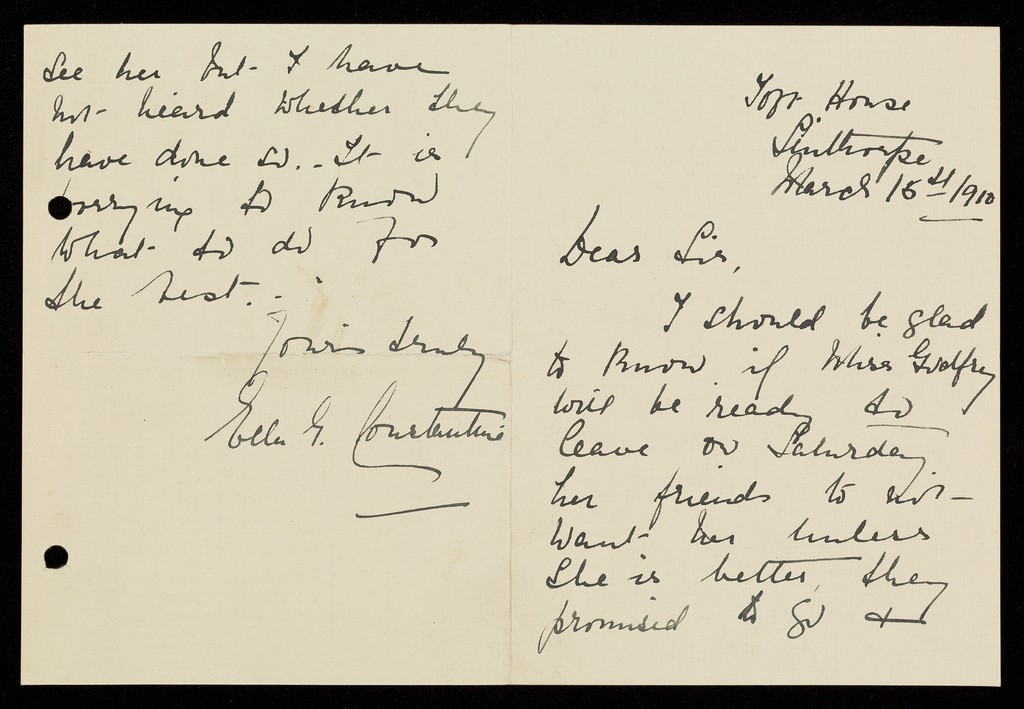 Toft House
Linthorpe
March 15th 1910
Dear Sir,
I should be glad
to know if Miss Godfrey
will be ready to
leave on Saturday
her friends do not
want her unless
she is better, they
promised to go &
see her but I have
not heard whether they
have done so. - It is
worrying to know
what to do for
the best. -
Yours truly
Ella G. Constantine